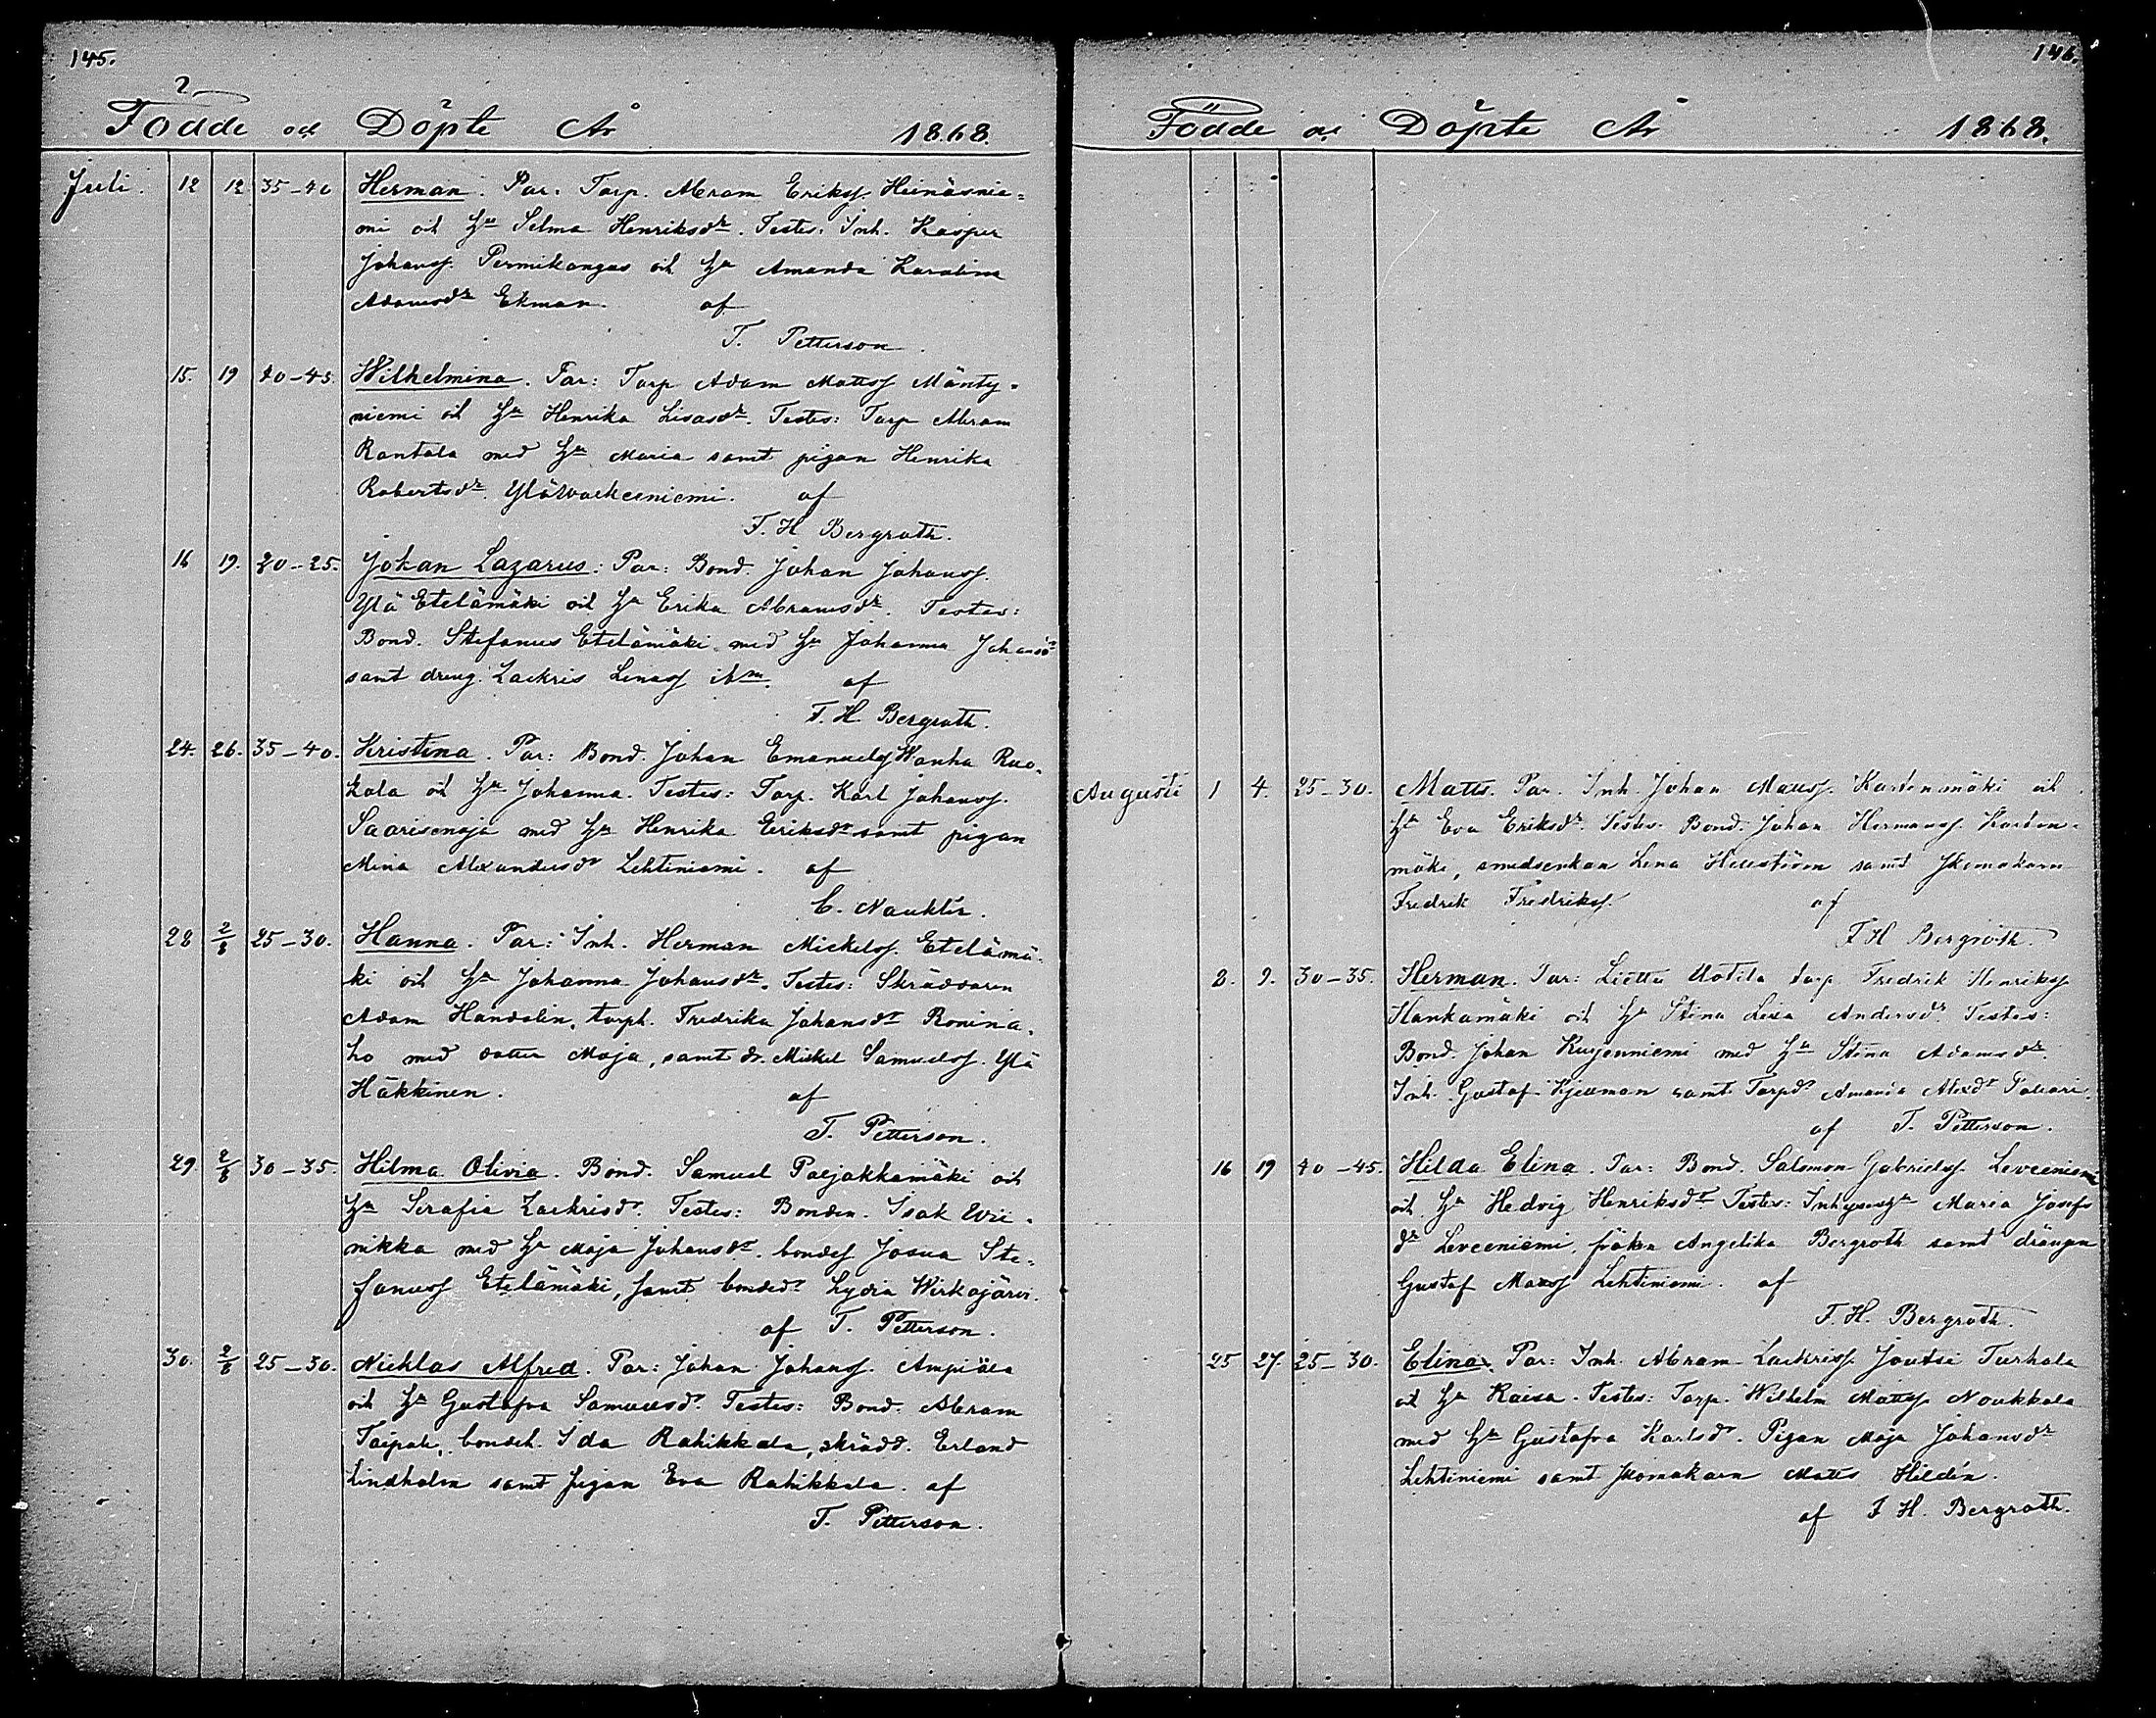 145.
Födde och Döpte År 1868.
Juli. 12 12 35-40 Herman. Par. Torp. Abram Eriks. Heinäsnie=
mi och Hu Selma Henriksdr. Testes. Inh. Kasper
Johans. Permikangas och Hu Amanda Karolina
Adamsdr Ekman. af
T. Petterson.
15. 19 40-45. Wilhelmina. Par: Torp Adam Matts Mänty=
niemi och Hu Henrika Lisasdr. Testes: Torp Abram
Rantala med Hu Maria samt pigan Henrika
Robertsdr. af
F. H Bergroth.
16 19. 20-25. Johan Lazarus: Par: Bond. Johan Johans.
Ylä Etelämäki och Hu Erika Abramsdr. Testes:
Bond. Stefanus Etelämäki med Hu Johanna Johansdr
samt dreng. Zackris Linas ibm. af
F. H. Bergroth.
24. 26. 35-40. Kristina. Par: Bond. Johan Emanuels Wanha Ruo=
kola och Hu Johanna. Testes: Torp. Karl Johans.
Saarisenoja med Hu Henrika Eriksdr samt pigan
Mina Alexandersdr Lehtiniemi. af
C. Nauklér.
28 2/8 25-30. Hanna. Par: Inh. Herman Mickels. Etelämä=
ki och Hu Johanna Johansdr. Testes: Skräddaren
Adam Handolin, torph. Fredrika Johansdr Ronina=
ho med dotter Maja, samt dr. Mickel Samuels. Ylä
Häkkinen. af
T. Petterson.
29. 2/8 30-35. Hilma Olivia. Bond. Samuel Paljakkamäki och
Hu Serafia Zackrisdr. Testes: Bonden. Isak
nikka med Hu Maja Johansdr. bondes Josua Ste=
fanus Etelämäki, samt bondedr Lydia Wirkajärvi.
af T. Petterson.
30. 2/8 25-30. Nicklas Alfred. Par: Johan Johans. Ampiala
och Hu Gustafva Samuelsdr. Testes: Bond. Abram
Taipale, bondeh. Ida Rahikkala, skrädd. Erland
Lindholm samt pigan Eva Rahikkala. af
T. Petterson.
146.
Födde och Döpte År 1868.
Augusti 1 4. 25-30. Matts. Par. Inh. Johan Matts. Kartenmäki och
Hu Eva Eriksdr. Testes. Bond. Johan Hermans. Karten=
mäki, smedsenkan Lena Hellström samt Skomakarn
Fredrik Fredriks. af
F H Bergroth.
2. 9. 30-35. Herman. Par: Uotila torp Fredrik Henriks
Hankamäki och Hu Stina Lisa Andersdr. Testes:
Bond. Johan med Hu Stina Adamsdr.
Inh. Gustaf Kjellman samt Torpdr Amanda Alexdr
af T. Petterson.
16 19 40-45. Hilda Elina. Par: Bond. Salomon Gabriels. Leveeniemi
och Hu Hedvig Henriksdr Testes: Inhyseshu Maria Josefs
dr Leveeniemi, fröken Angelika Bergroth samt drängen
Gustaf Matts Lehtiniemi. af
F. H. Bergroth.
25 27. 25-30. Elina. Par: Inh. Abram Zackris. Joutsi Turhala
och Hu Kaisa. Testes: Torp. Wilhelm Matts Noukkala
med Hu Gustafva Karlsdr. Pigan Maja Johansdr
Lehtiniemi samt skomakarn Matts Hildén.
af F H. Bergroth.